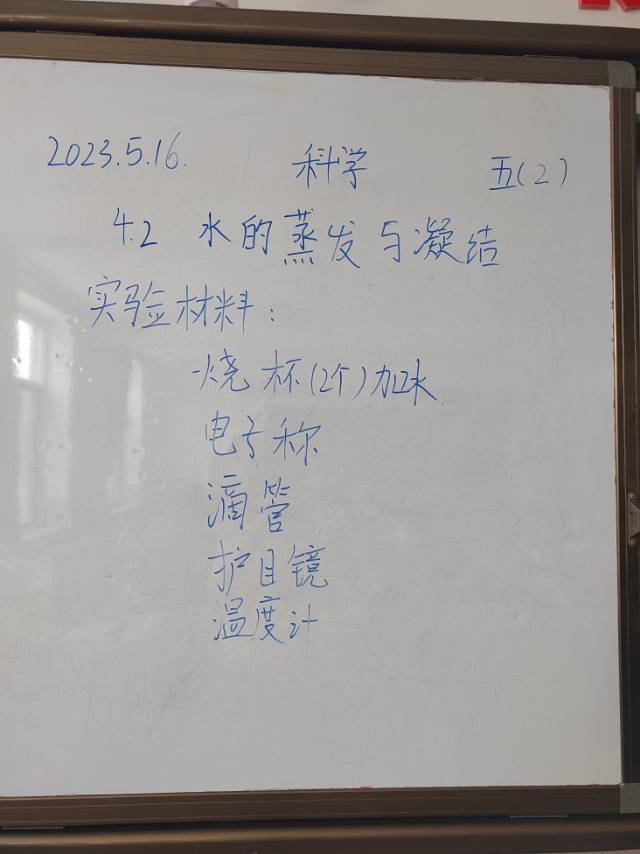 2023.5.16. 科学 五(2)
4.2 水的蒸发与凝结
实验材料:
烧杯(2个)加水
电子称
滴管
护目镜
温度计